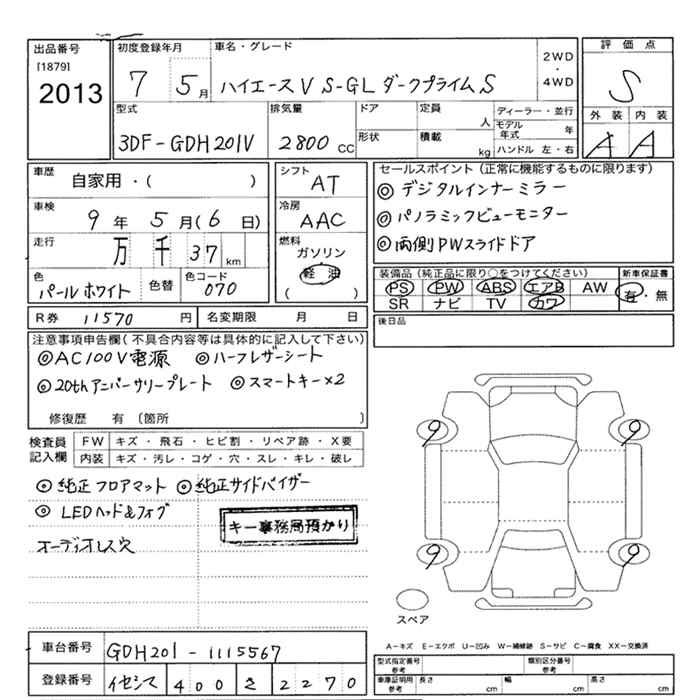 出品番号
[1879]
2013
初度登録年月
7 5月
車名・グレード
ハイエースV S-GL ダークプライムS
2WD
・
4WD
評価点
S
外装 内装
A A
型式
3DF-GDH201V
排気量
2800 CC
ドア
形状
定員 人
積載 kg
ディーラー・並行
モデル年式 年
ハンドル 左・右
車歴
自家用・( )
車検
9年 5月(6日)
走行
万 千 37 km
色
パールホワイト
色替
色コード
070
シフト
AT
冷房
AAC
燃料
ガソリン
軽油
( )
セールスポイント(正常に機能するものに限ります)
◎デジタルインナーミラー
◎パノラミックビューモニター
◎両側PWスライドドア
装備品(純正品に限り○をつけてください)
PS PW ABS エアB AW
SR ナビ TV カワ
新車保証書
有・無
後日品
R券 11570 円
名変期限 月 日
注意事項申告欄(不具合内容等は具体的に記入して下さい)
◎AC100V電源 ◎ハーフレザーシート
◎20thアニバーサリープレート ◎スマートキー×2
修復歴 有(箇所 )
検査員記入欄
FW キズ・飛石・ヒビ割・リペア跡・X要
内装 キズ・汚レ・コゲ・穴・スレ・キレ・破レ
◎純正フロアマット ◎純正サイドバイザー
◎LEDヘッド&フォグ
オーディオレス穴
キー事務局預かり
9 9
9 9
スペア
A-キズ E-エクボ U-凹み W-補修跡 S-サビ C-腐食 XX-交換済
車台番号 GDH201-1115567
登録番号 イセシマ 400 さ 2270
型式指定番号 参考
類別区分番号 参考
車庫証明用 参考
長さ cm 幅 cm 高さ cm